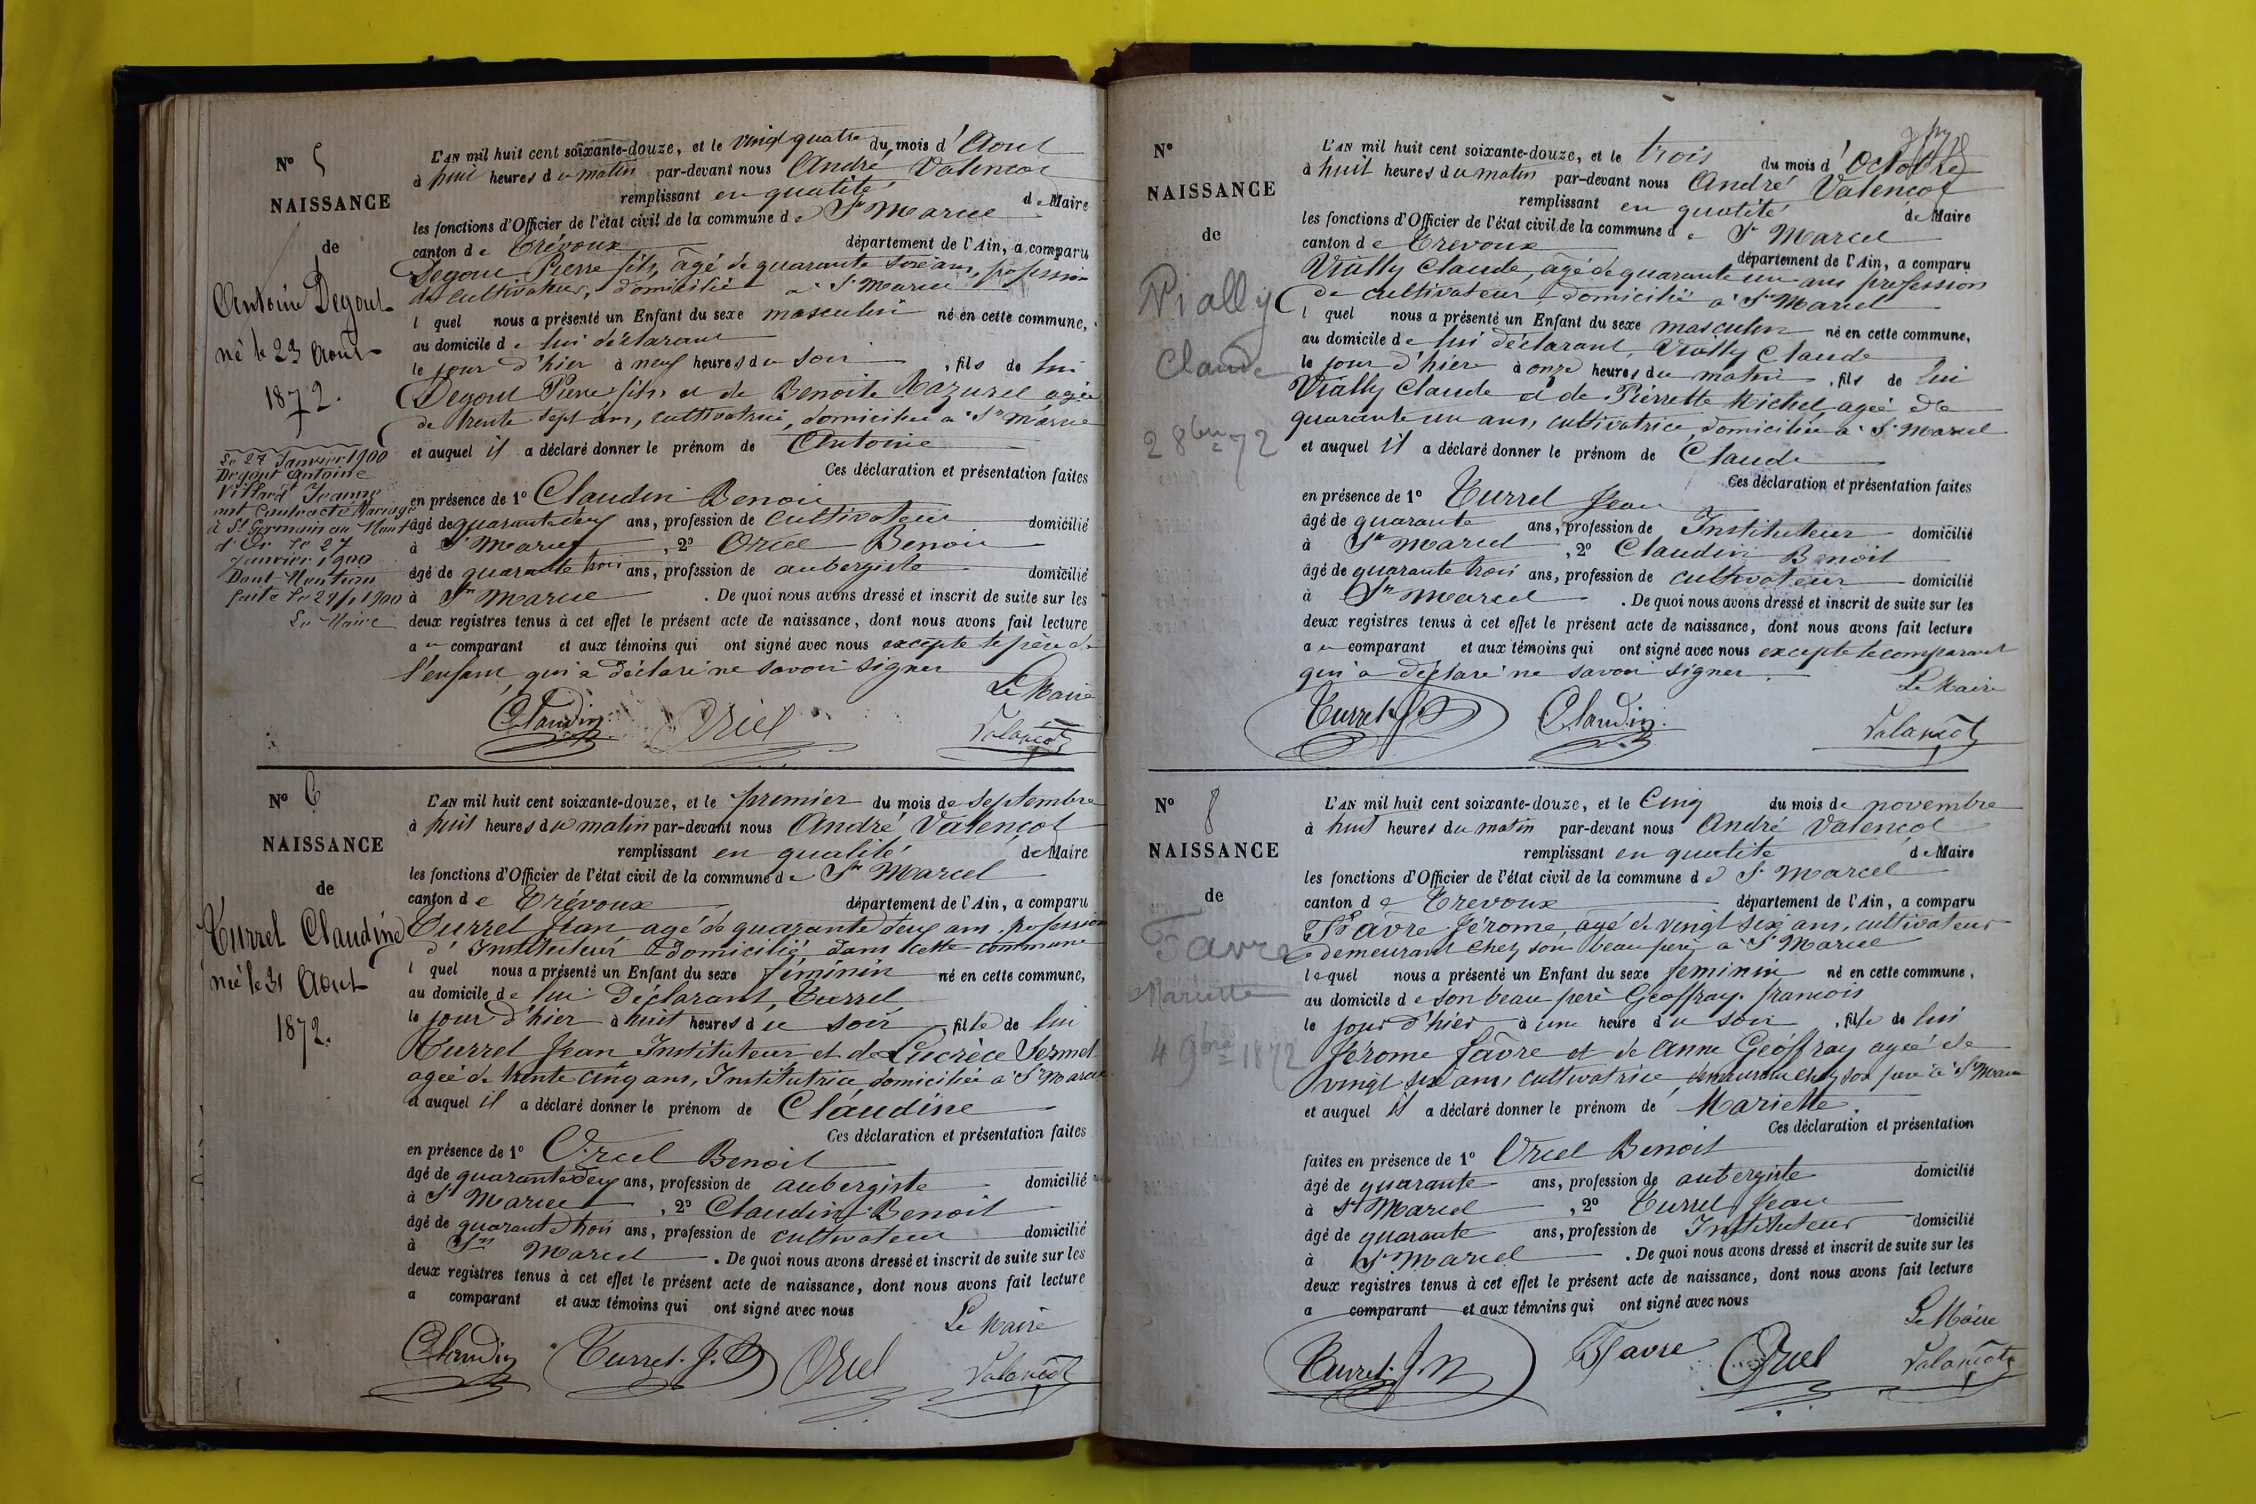 N° 5
NAISSANCE
de
Antoine Degout
né le 23 Aout
1872.
Le 27 Janvier 1900
Degout Antoine
Villard Jeanne
ont Contracté Mariage
à St Germain au Mont
d'Or le 27
Janvier 1900
Dont Mention
faite le 29/1 1900
Le Maire
L'AN mil huit cent soixante-douze, et le vingt quatre du mois d'Aout
à huit heures du matin par-devant nous André Valençot
remplissant en qualité de Maire
les fonctions d'Officier de l'état civil de la commune de St Marcel
canton de Trévoux département de l'Ain, a comparu
Degout Pierre fils, âgé de quarante ans, profession
de cultivateur, domicilié à St Marcel
lequel nous a présenté un Enfant du sexe masculin né en cette commune,
au domicile de lui déclarant
le jour d'hier à neuf heures du soir, fils de lui
Degout Pierre fils, et de Benoite Mazurel agée
de trente sept ans, cultivatrice, domiciliée à St Marcel
et auquel il a déclaré donner le prénom de Antoine
Ces déclaration et présentation faites
en présence de 1° Claudin Benoit
âgé de quarante deux ans, profession de cultivateur domicilié
à St Marcel, 2° Orcel Benoit
âgé de quarante trois ans, profession de aubergiste domicilié
à St Marcel. De quoi nous avons dressé et inscrit de suite sur les
deux registres tenus à cet effet le présent acte de naissance, dont nous avons fait lecture
au comparant et aux témoins qui ont signé avec nous excepté le père de
l'enfant, qui a déclaré ne savoir signer
Le Maire
Claudin Orcel Valançot
N° 6
NAISSANCE
de
Turrel Claudine
née le 31 Aout
1872.
L'AN mil huit cent soixante-douze, et le premier du mois de septembre
à huit heures du matin par-devant nous André Valençot
remplissant en qualité de Maire
les fonctions d'Officier de l'état civil de la commune de St Marcel
canton de Trévoux département de l'Ain, a comparu
Turrel Jean agé de quarante deux ans profession
d'Instituteur domicilié dans cette commune
lequel nous a présenté un Enfant du sexe féminin né en cette commune,
au domicile de lui Déclarant, Turrel
le jour d'hier à huit heures du soir, fille de lui
Turrel Jean Instituteur et de Lucrèce Sermet
agée de trente cinq ans, Institutrice domiciliée à St Marcel
et auquel il a déclaré donner le prénom de Claudine
Ces déclaration et présentation faites
en présence de 1° Orcel Benoit
âgé de quarante deux ans, profession de aubergiste domicilié
à St Marcel, 2° Claudin Benoit
âgé de quarante trois ans, profession de cultivateur domicilié
à St Marcel. De quoi nous avons dressé et inscrit de suite sur les
deux registres tenus à cet effet le présent acte de naissance, dont nous avons fait lecture
a comparant et aux témoins qui ont signé avec nous
Le Maire
Claudin Turrel J. Orcel Valançot
N°
NAISSANCE
de
Vially
Claude
2 8bre 72
L'AN mil huit cent soixante-douze, et le trois du mois d'Octobre
à huit heures du matin par-devant nous André Valençot
remplissant en qualité de Maire
les fonctions d'Officier de l'état civil de la commune de St Marcel
canton de Trevoux département de l'Ain, a comparu
Vially Claude, âgé de quarante un ans profession
de cultivateur domicilié à St Marcel
lequel nous a présenté un Enfant du sexe masculin né en cette commune,
au domicile de lui déclarant, Vially Claude
le jour d'hier à onze heures du matin, fils de lui
Vially Claude et de Pierrette Michel, agée de
quarante un ans, cultivatrice, domiciliée à St Marcel
et auquel il a déclaré donner le prénom de Claude
Ces déclaration et présentation faites
en présence de 1° Turrel Jean
âgé de quarante ans, profession de Instituteur domicilié
à St Marcel, 2° Claudin Benoit
âgé de quarante trois ans, profession de cultivateur domicilié
à St Marcel. De quoi nous avons dressé et inscrit de suite sur les
deux registres tenus à cet effet le présent acte de naissance, dont nous avons fait lecture
au comparant et aux témoins qui ont signé avec nous excepté le comparant
qui a déclaré ne savoir signer.
Le Maire
Turrel J. Claudin Valançot
N° 8
NAISSANCE
de
Favre
Mariette
4 9bre 1872
L'AN mil huit cent soixante-douze, et le Cinq du mois de novembre
à huit heures du matin par-devant nous André Valençot
remplissant en qualité de Maire
les fonctions d'Officier de l'état civil de la commune de St Marcel
canton de Trevoux département de l'Ain, a comparu
Favre Jérome, agé de vingt six ans, cultivateur
demeurant chez son beau père, à St Marcel
lequel nous a présenté un Enfant du sexe feminin né en cette commune,
au domicile de son beau père Geoffray francois
le jour d'hier à une heure du soir, fille de lui
Jérome Favre et de Anne Geoffray agée de
vingt six ans, cultivatrice demeurant chez son père à St Marcel
et auquel il a déclaré donner le prénom de Mariette.
Ces déclaration et présentation
faites en présence de 1° Orcel Benoit
âgé de quarante ans, profession de aubergiste domicilié
à St Marcel, 2° Turrel Jean
âgé de quarante ans, profession de Instituteur domicilié
à St Marcel. De quoi nous avons dressé et inscrit de suite sur les
deux registres tenus à cet effet le présent acte de naissance, dont nous avons fait lecture
a comparant et aux témoins qui ont signé avec nous
Le Maire
Turrel J. Favre Orcel Valançot